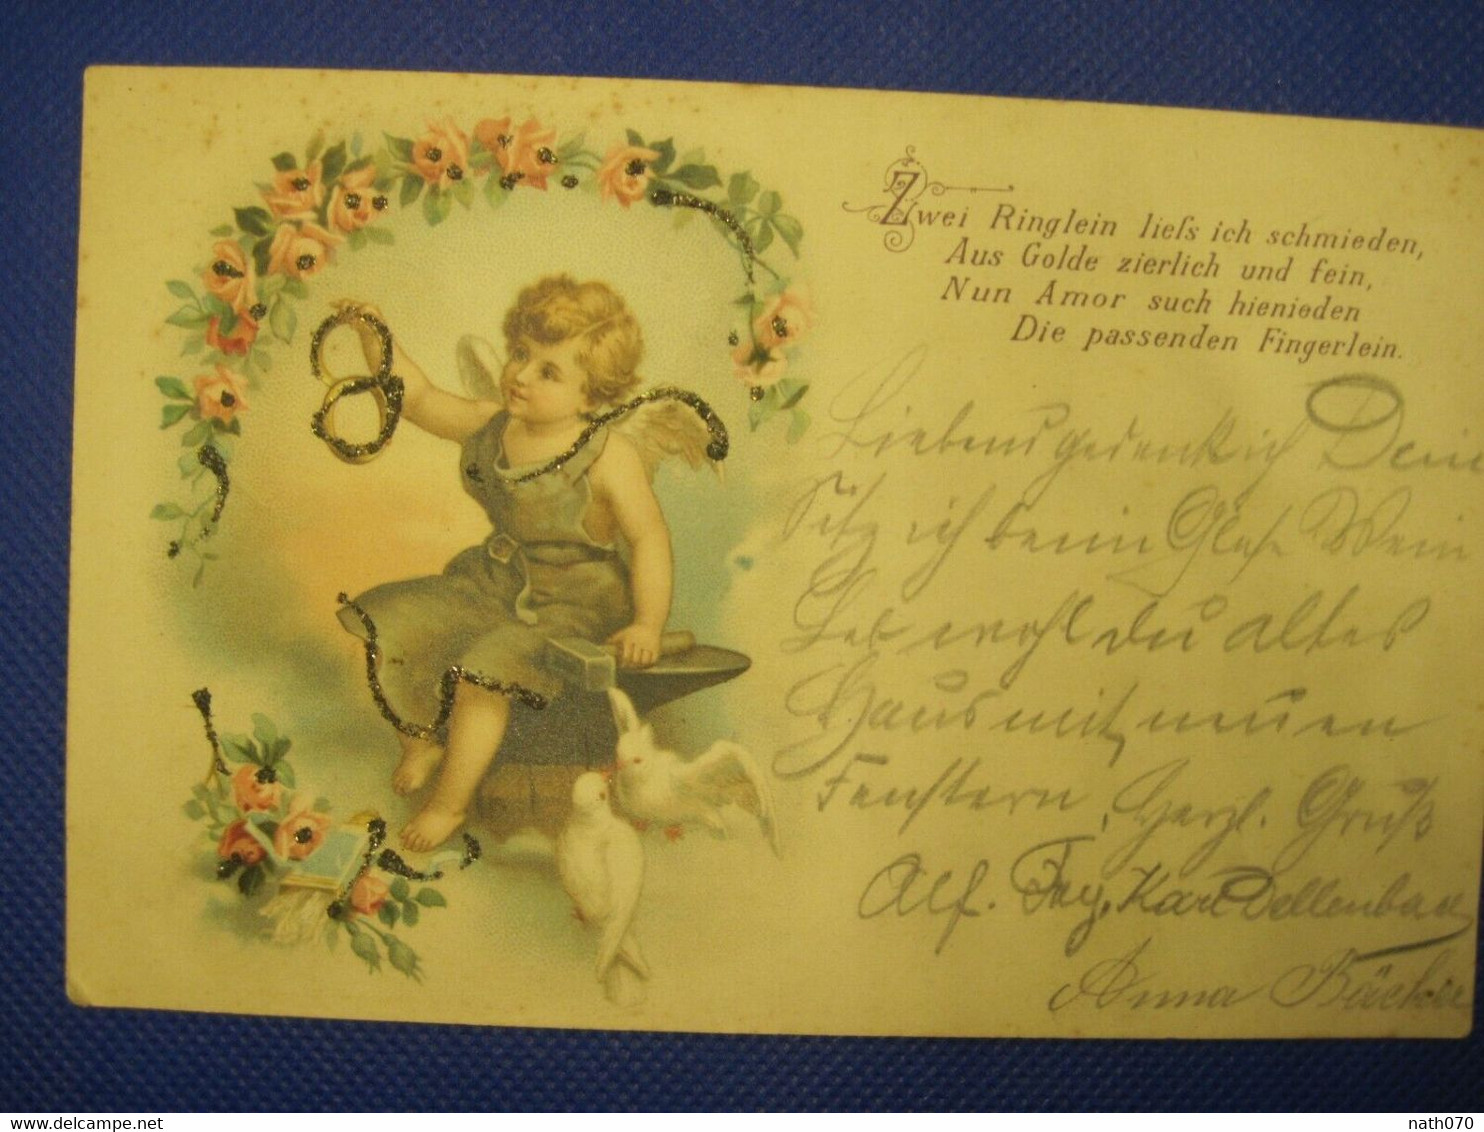 Zwei Ringlein lieſs ich schmieden,
Aus Golde zierlich und fein,
Nun Amor such hienieden
Die passenden Fingerlein.
Liebend gedenk ich Dein
Sitz ich beim Glase Wein
Leb wohl du altes
Haus mit neuen
Fenstern, Herzl. Gruß
Alf. Frey, Karl Dellenbach
Anna Bäcker
delcampe.net
nath070